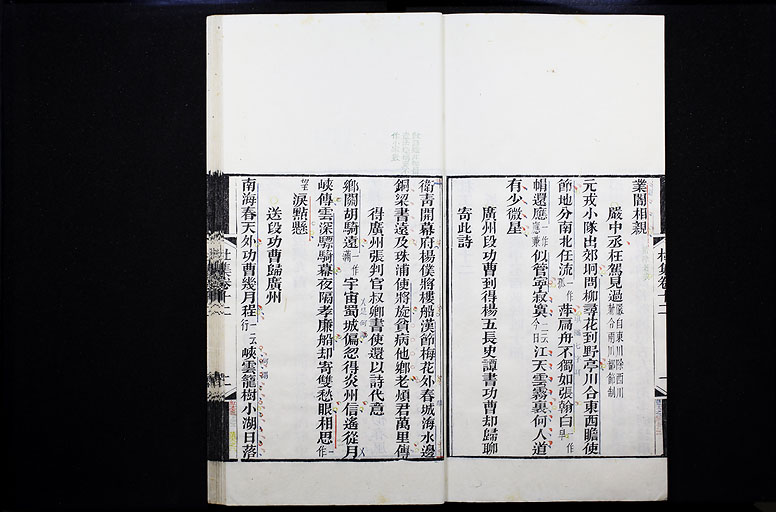 業閣相親
嚴中丞枉駕見過嚴自東川除西川敕令兩川都節制
元戎小隊出郊坰問柳尋花到野亭川合東西瞻使
節地分南北任流一作孤萍扁舟不獨如張翰白一作皁
帽還應一作應兼似管寧寂寞今日一云江天雲霧裏何人道
有少微星
廣州段功曹到得楊五長史譚書功曹却歸聊
寄此詩
衛青開幕府楊僕將樓船漢節梅花外春城海水邊
銅梁書遠及珠浦使將旋貧病他鄉老煩君萬里傳
得廣州張判官叔卿書使還以詩代意
鄉關胡騎遠一作滿宇宙蜀城偏忽得炎州信遙從月
峽傳雲深驃騎幕夜隔孝廉船却寄雙愁眼相思一作
望淚點懸
送段功曹歸廣州
南海春天外功曹幾月程一云行峽雲籠樹小湖日落
杜集卷十二
杜集卷十二